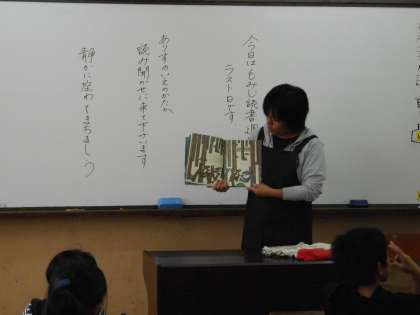 今日はもみじ読書週
ラスト日です
ありすのいえのかたが
読み聞かせに来て下さいます
静かに座ってまちましょう